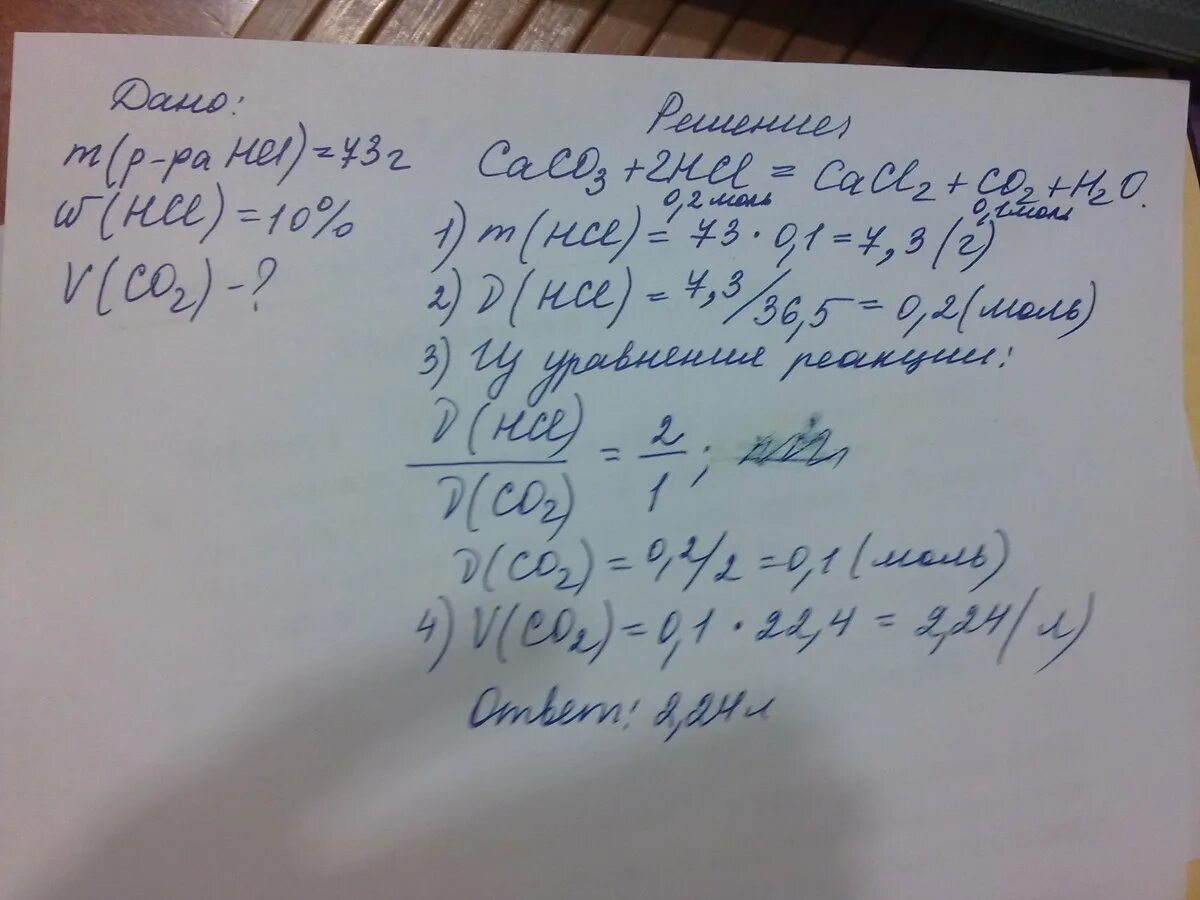 Дано:
m(р-ра HCl)=73г
ω(HCl)=10%
V(CO₂)-?
Решение
CaCO₃+2HCl=CaCl₂+CO₂+H₂O.
0,2моль 0,1моль
1) m(HCl)=73·0,1=7,3(г)
2) ν(HCl)=7,3/36,5=0,2(моль)
3) Из уравнения реакции:
ν(HCl)/ν(CO₂)=2/1;
ν(CO₂)=0,2/2=0,1(моль)
4) V(CO₂)=0,1·22,4=2,24(л)
Ответ: 2,24л